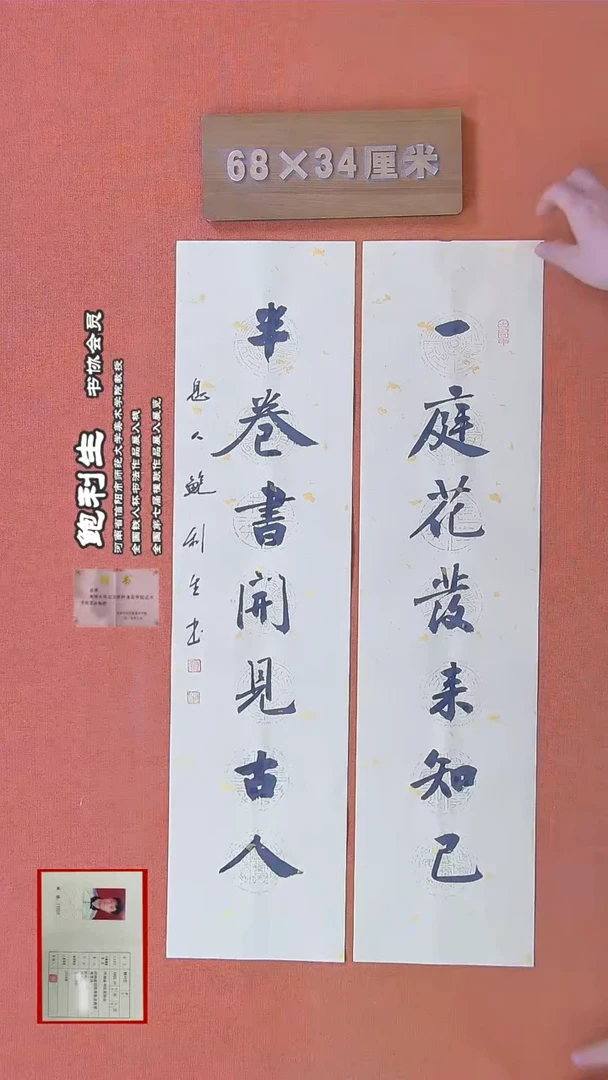 68×34厘米
一庭花發来知己
半卷書開見古人
息人鮑利生书
鲍利生 书协会员
河南省信阳市师范大学美术学院教授
全国铁人杯书法作品展入
全国第七届楹联作品展入展览